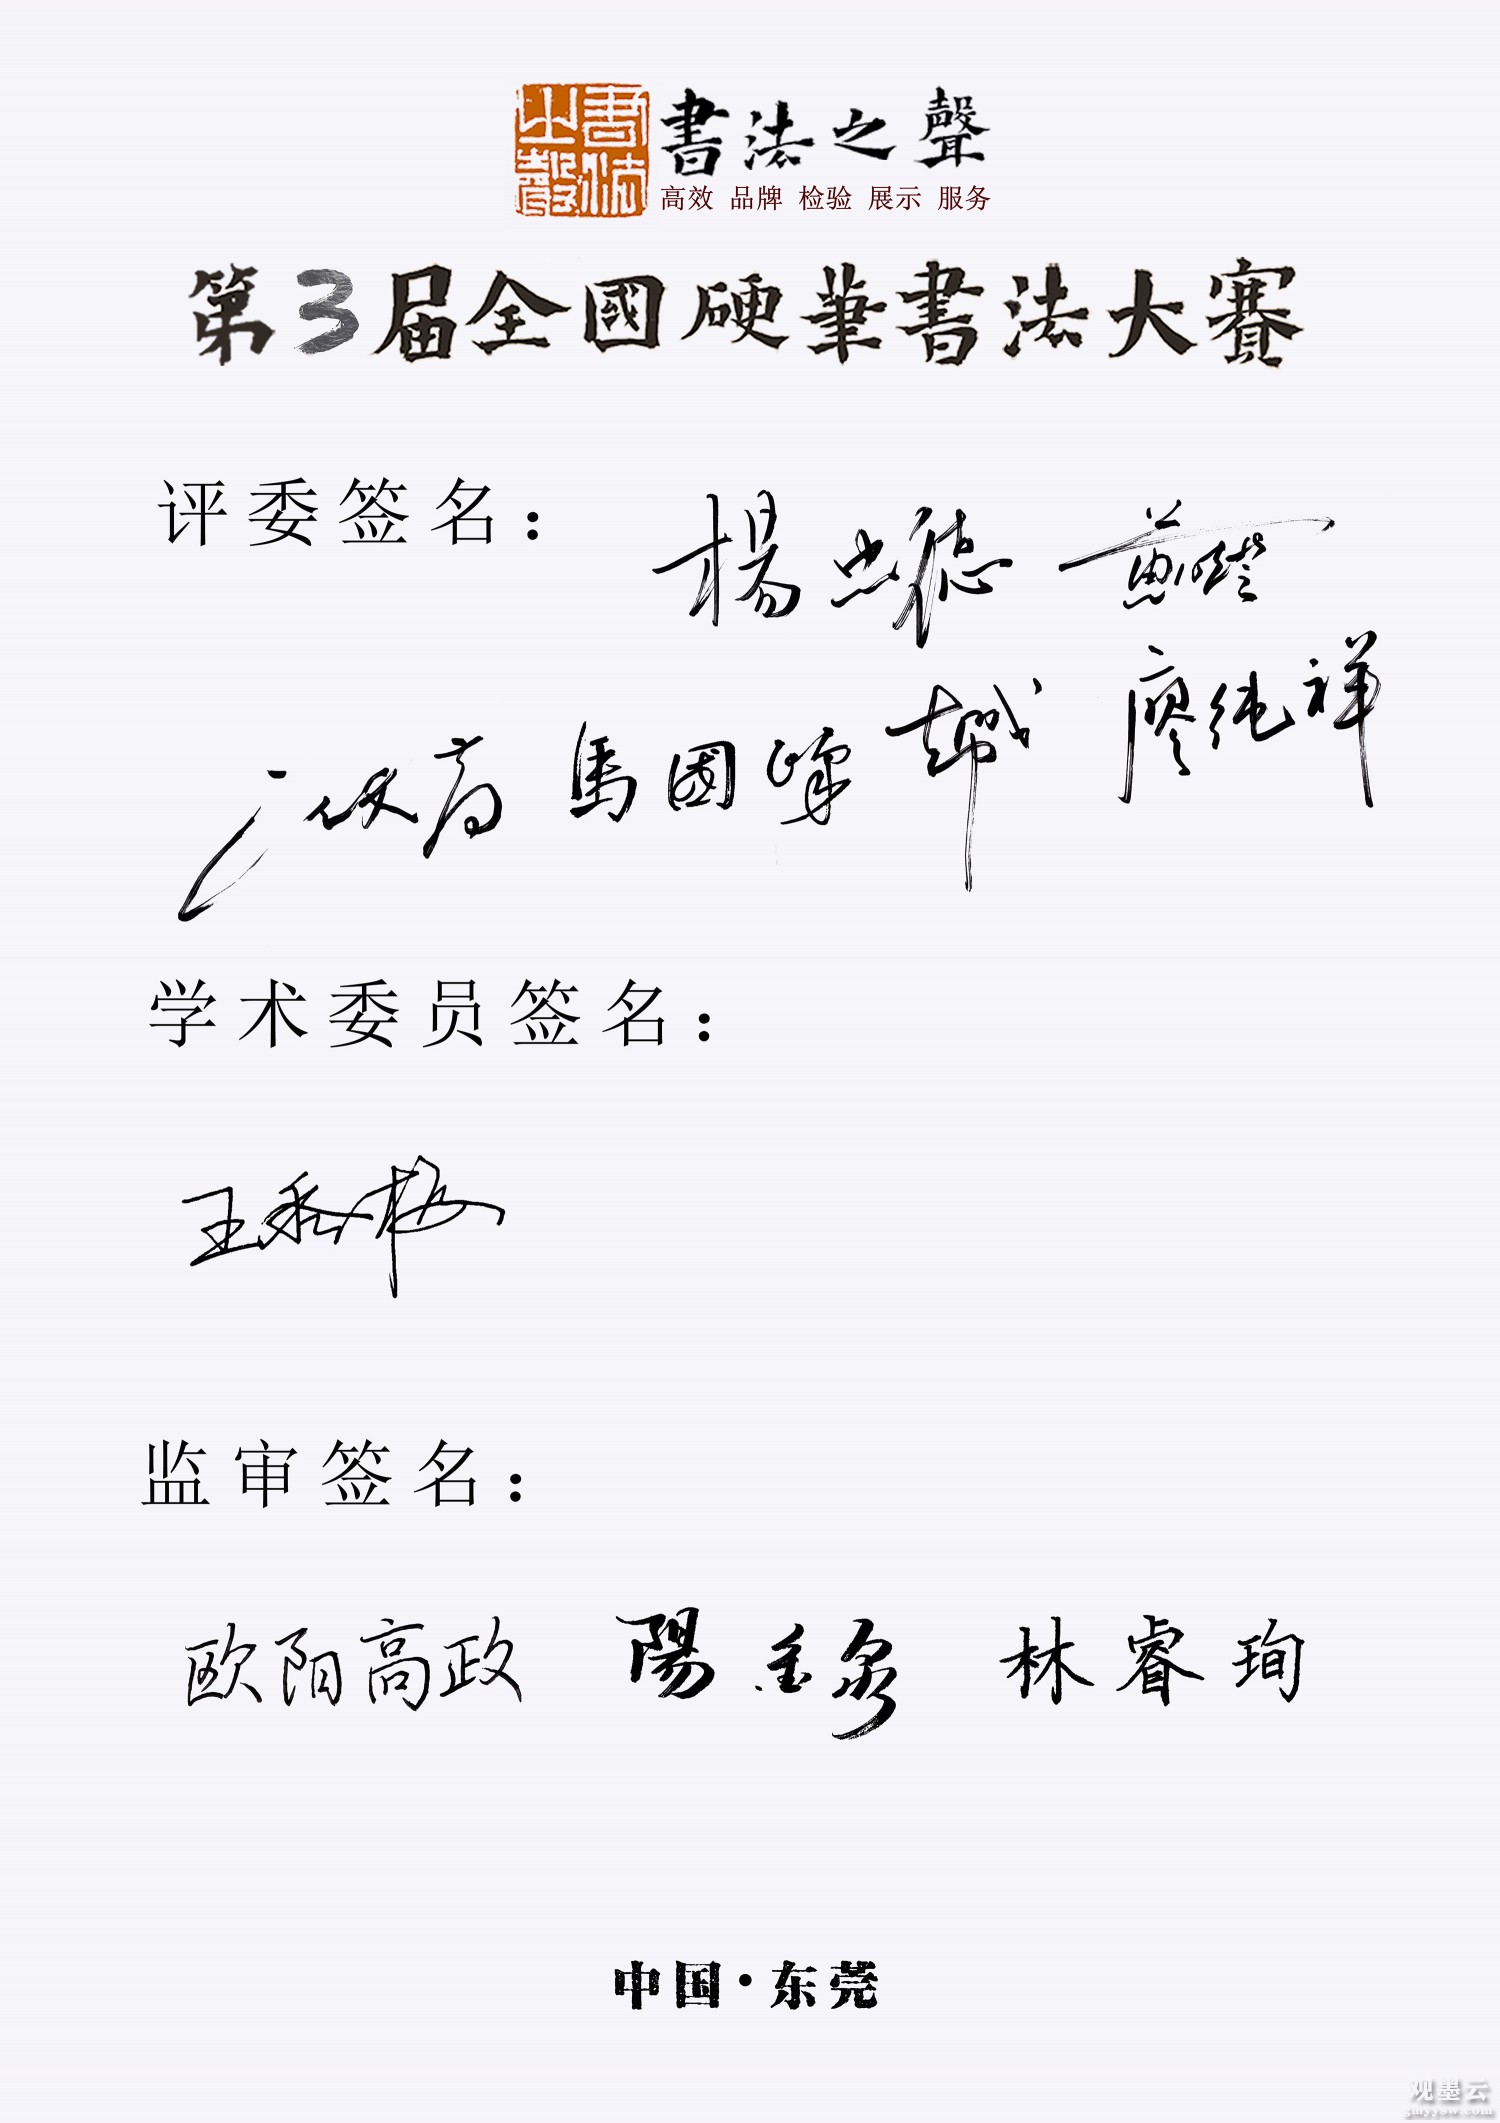 書法之聲
書法之聲
高效 品牌 检验 展示 服务
第3届全國硬筆書法大賽
评委签名：
楊忠德
廖纯祥
馬國峰
学术委员签名：
王 梅
监审签名：
欧阳高政 陽 林睿珣
中国·东莞
观墨云